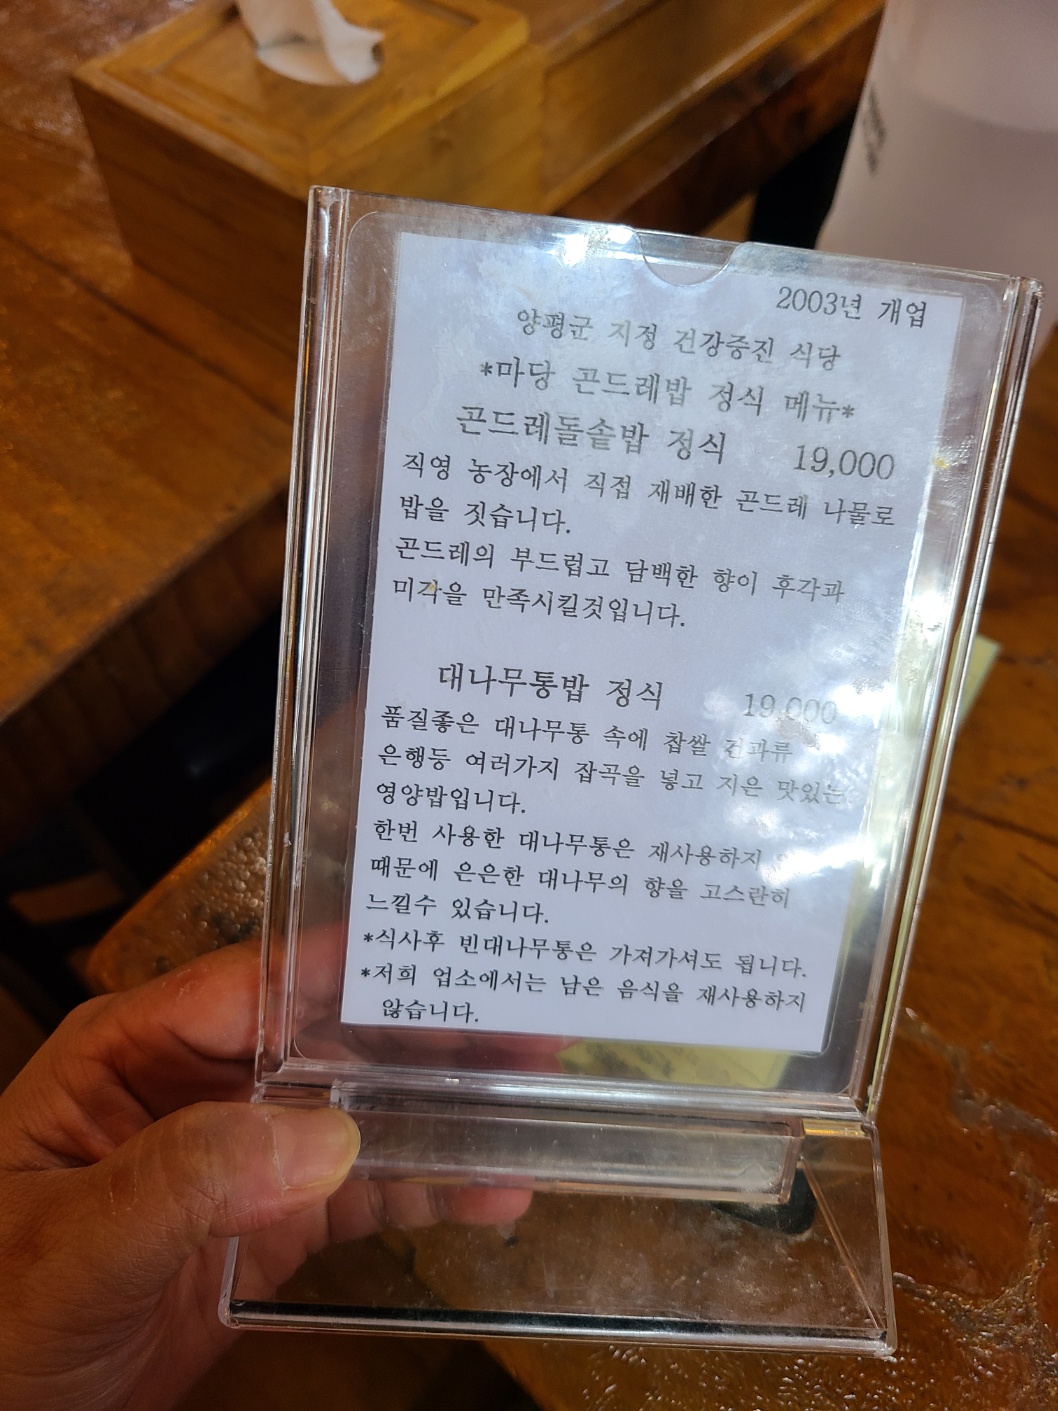 2003년 개업
양평군 지정 건강증진 식당
*마당 곤드레밥 정식 메뉴*
곤드레돌솥밥 정식 19,000
직영 농장에서 직접 재배한 곤드레 나물로
밥을 짓습니다.
곤드레의 부드럽고 담백한 향이 후각과
미각을 만족시킬것입니다.
대나무통밥 정식 19,000
품질좋은 대나무통 속에 찹쌀 견과류
은행등 여러가지 잡곡을 넣고 지은 맛있는
영양밥입니다.
한번 사용한 대나무통은 재사용하지
때문에 은은한 대나무의 향을 고스란히
느낄수 있습니다.
*식사후 빈대나무통은 가져가셔도 됩니다.
*저희 업소에서는 남은 음식을 재사용하지
않습니다.